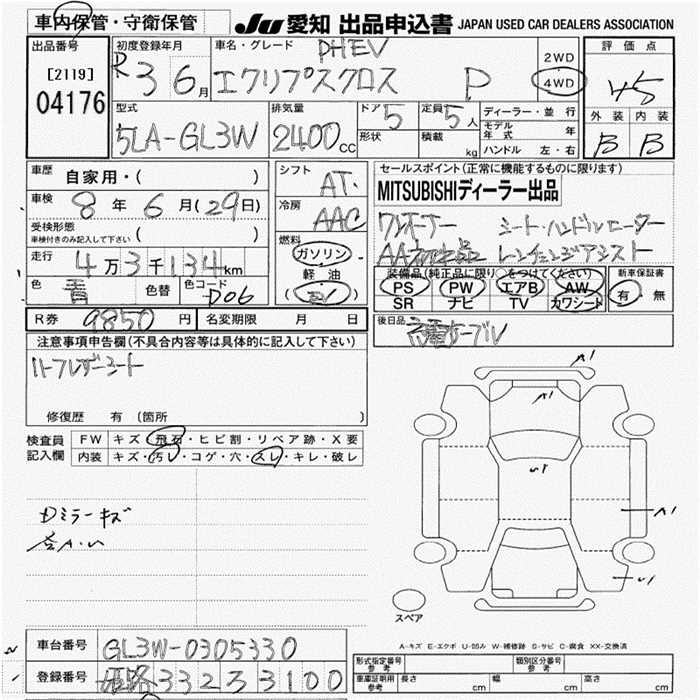 車内保管・守衛保管
JU 愛知 出品申込書 JAPAN USED CAR DEALERS ASSOCIATION
出品番号
[2119]
04176
初度登録年月
R 3 6月
車名・グレード
PHEV
エクリプスクロス P
2WD
4WD
評価点
4.5
外装 内装
B B
型式
5LA-GL3W
排気量
2400cc
ドア
5
形状
定員
5人
積載
kg
ディーラー・並行
モデル年式 年
ハンドル 左・右
車歴 自家用・( )
車検 8年6月(29日)
受検形態
車検付きのみ記入して下さい ( )
走行 4万3千134km
色 青 色替 色コード D06
シフト
AT
冷房
AAC
燃料
ガソリン
軽油
セールスポイント(正常に機能するものに限ります)
MITSUBISHIディーラー出品
ワンオーナー シート・ハンドルヒーター
AA初出品 レンチェンジアシスト
装備品(純正品に限り○をつけてください)
PS PW エアB AW
SR ナビ TV カワシート
新車保証書
有・無
R券 9850円 名変期限 月 日
後日品 充電ケーブル
注意事項申告欄(不具合内容等は具体的に記入して下さい)
ハーフレザーシート
修復歴 有 (箇所 )
検査員記入欄
FW キズ・飛石・ヒビ割・リペア跡・X要
内装 キズ・汚レ・コゲ・穴・スレ・キレ・破レ
Dミラーキズ
A1
A1
U1
A1
U1
スペア
A-キズ E-エクボ U-凹み W-補修跡 S-サビ C-腐食 XX-交換済
車台番号 GL3W-0305330
登録番号 姫路 332 3 3100
形式指定番号 参考
類別区分番号 参考
車庫証明用 参考 長さ cm 幅 cm 高さ cm